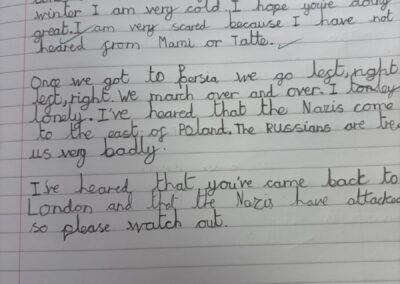 winter I am very cold. I hope you're doing
great. I am very scared because I have not
heared from Mami or Tatte.
Once we got to Persia we go left, right
left, right. We march over and over. I
lonely. I've heared that the Nazis come
to the east of Poland. The Russians are tre
us very badly.
I've heared that you've came back to
London and that the Nazis have attacked
so please watch out.